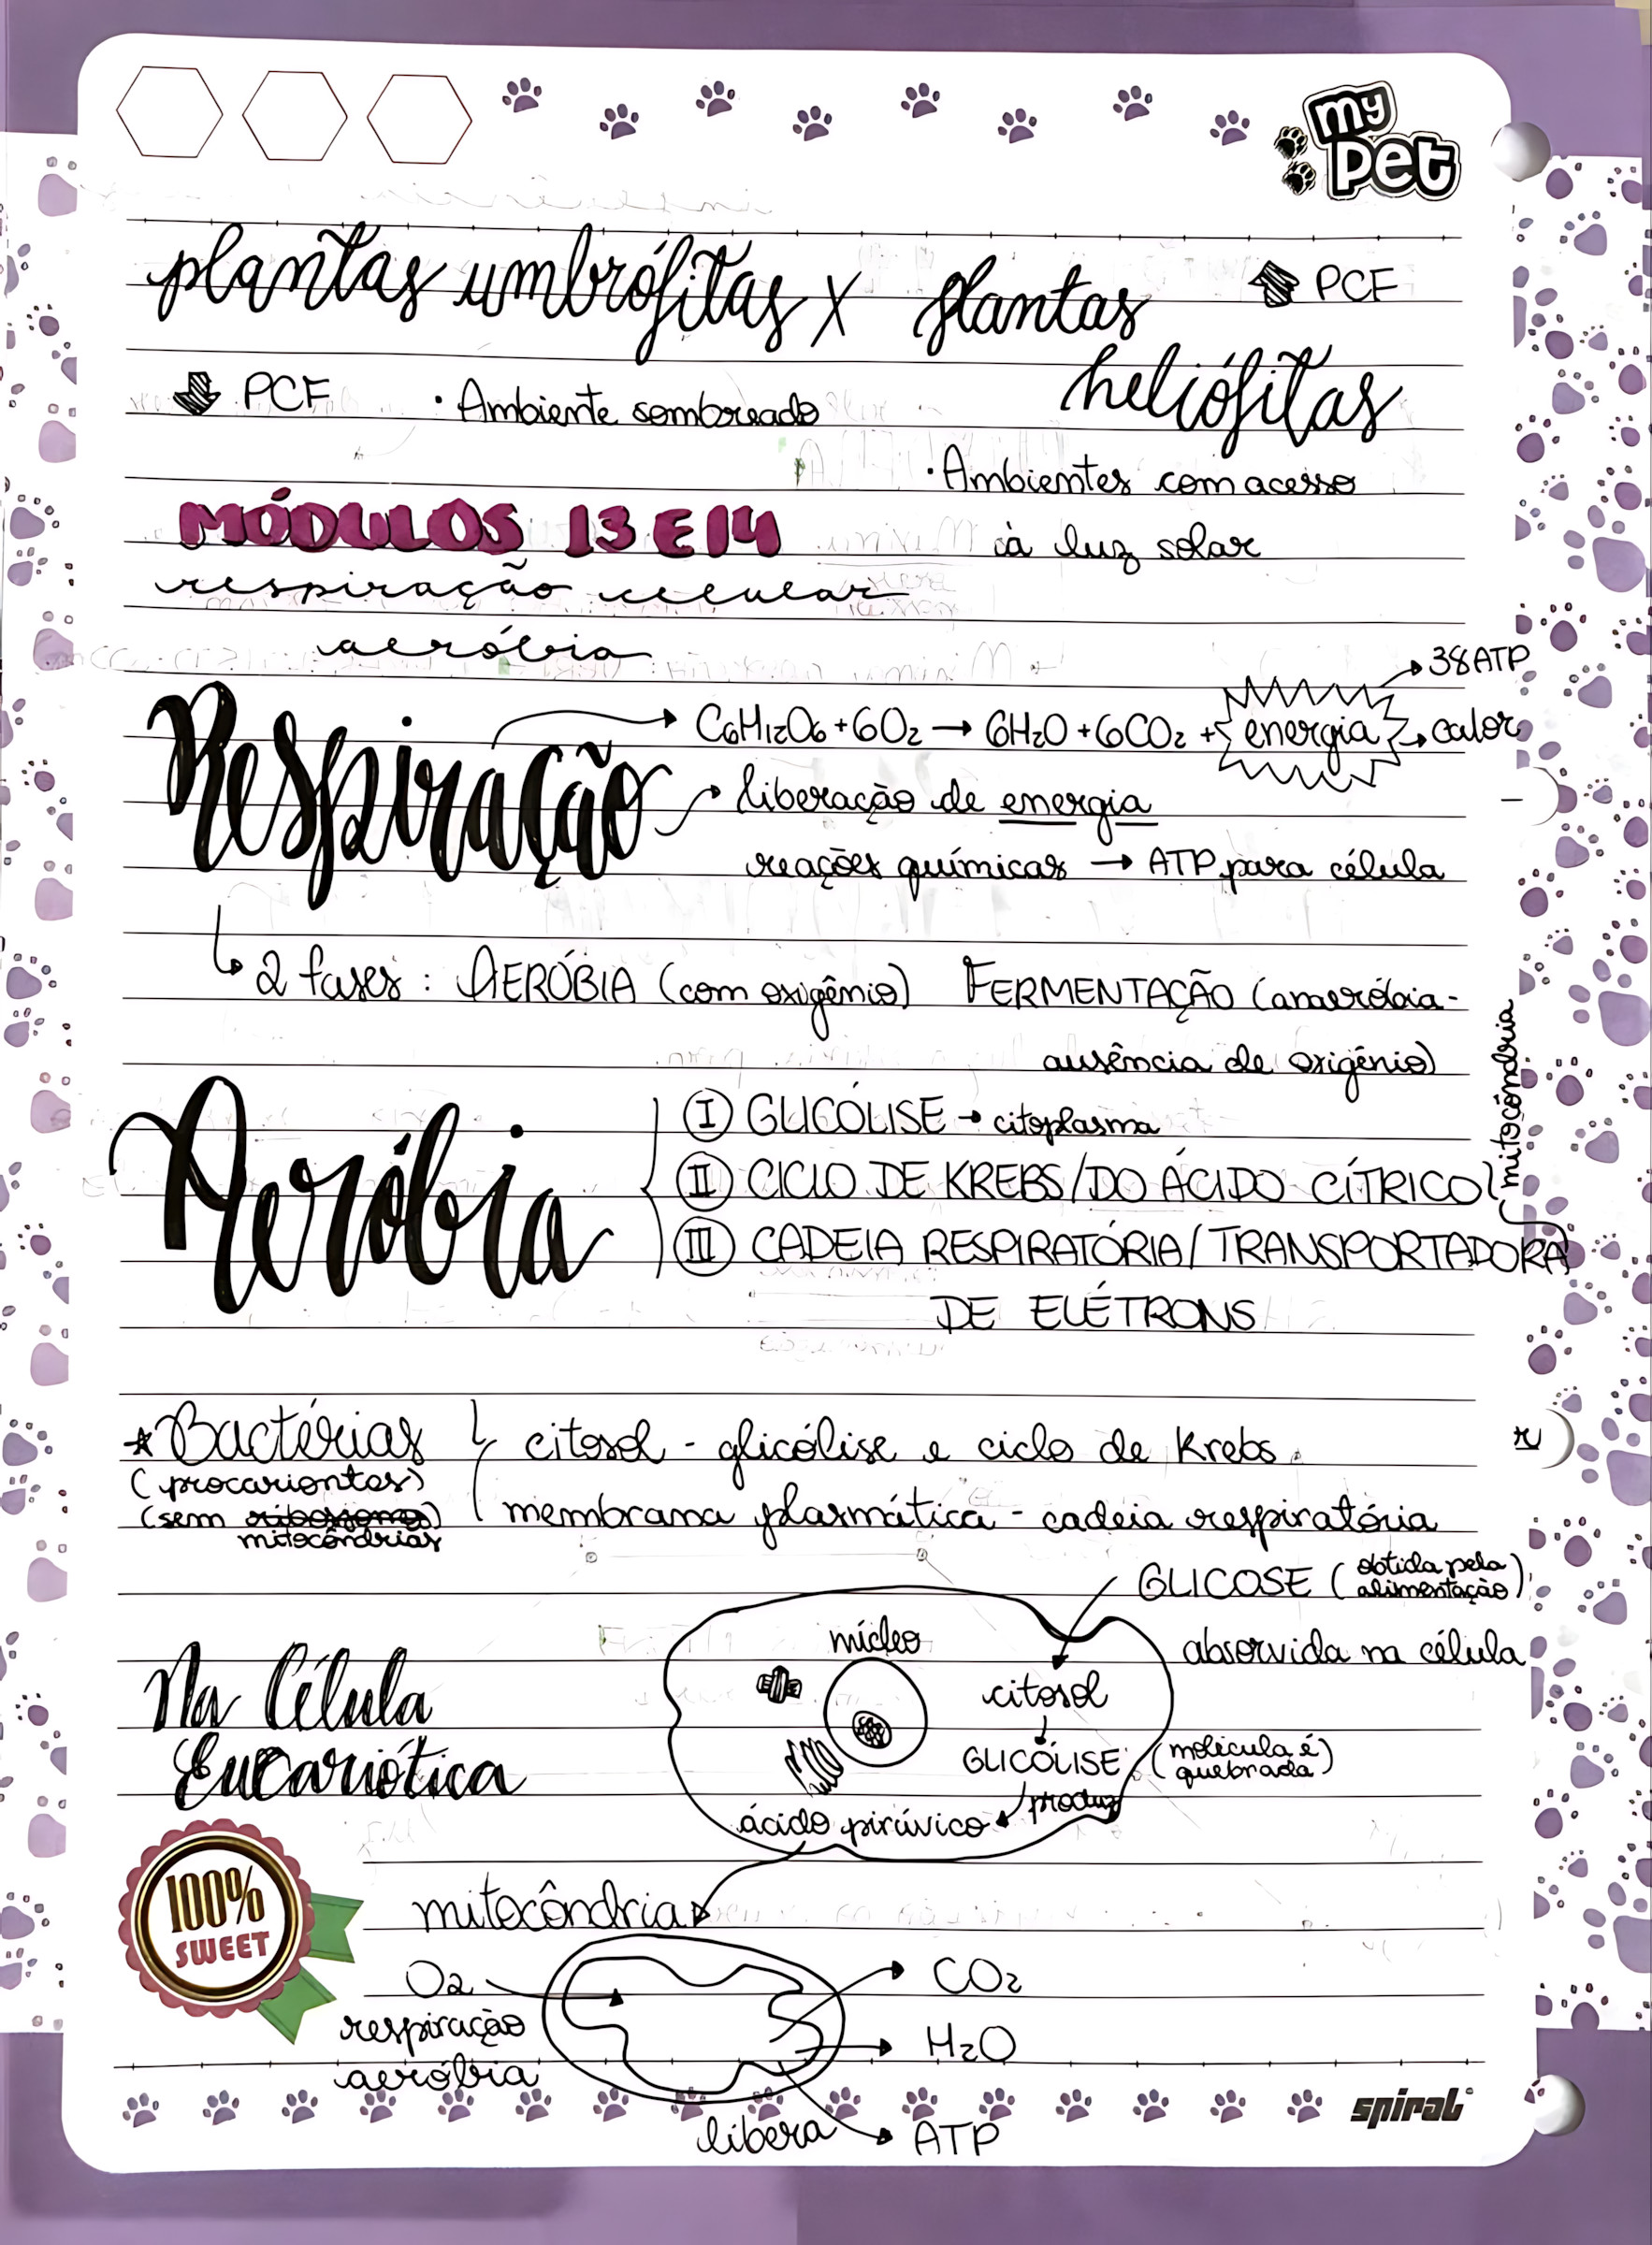 my
pet
plantas umbrófitas X plantas heliófitas
⬆ PCF
⬇ PCF · Ambiente sombreado
· Ambientes com acesso
à luz solar
MÓDULOS 13 E 14
respiração celular
aeróbia
Respiração → C6H12O6 + 6O2 → 6H2O + 6CO2 + energia → calor
→ 38 ATP
→ liberação de energia
reações químicas → ATP para célula
↳ 2 fases: AERÓBIA (com oxigênio) FERMENTAÇÃO (anaeróbia -
ausência de oxigênio)
Aeróbia
I GLICÓLISE → citoplasma
II CICLO DE KREBS/DO ÁCIDO CÍTRICO
III CADEIA RESPIRATÓRIA/TRANSPORTADORA
DE ELÉTRONS
mitocôndria
* Bactérias
(procariontes)
(sem ribossomos)
mitocôndrias
citosol - glicólise e ciclo de Krebs
membrana plasmática - cadeia respiratória
Na Célula
Eucariótica
GLICOSE (obtida pela
alimentação)
absorvida na célula
núcleo
citosol
↓
GLICÓLISE (molécula é
quebrada)
produz
ácido pirúvico
mitocôndria
O2
respiração
aeróbia
CO2
H2O
libera → ATP
100%
SWEET
spiral